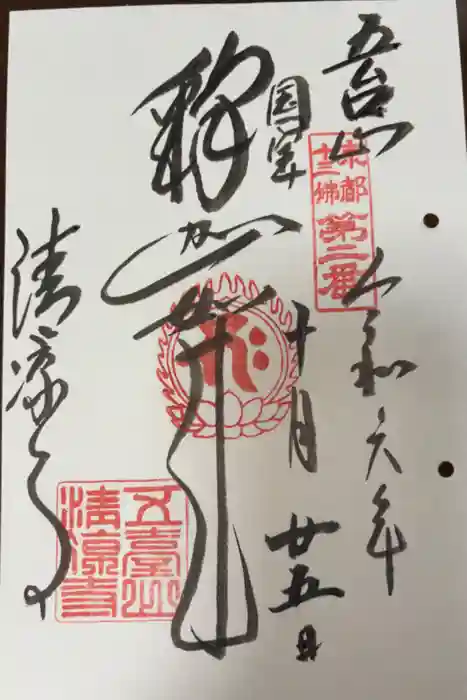 五台山
京都
十三佛
第二番
令和六年
十月廿五日
国宝
釋迦如来
清凉寺
五臺山
清凉寺